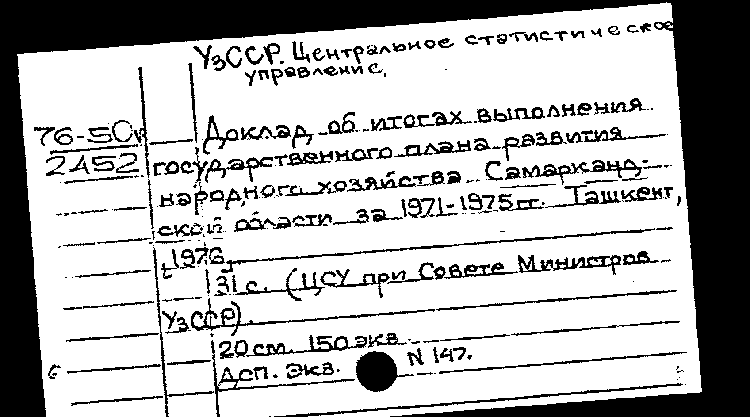 УзССР. Центральное статистическое
управление.
76-5Ск
2452
Доклад об итогах выполнения
государственного плана развития
народного хозяйства Самарканд-
ской области за 1971-1975 гг. Ташкент,
1976.
31 с. (ЦСУ при Совете Министров
УзССР).
20 см. 150 экз.
Дсп. Экз. N 147.